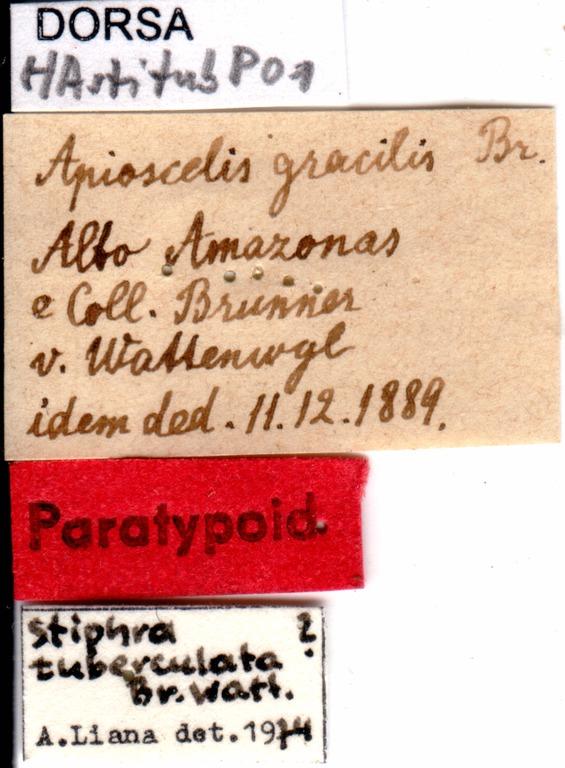 DORSA
HArtitubP01
Apioscelis gracilis Br.
Alto Amazonas
e Coll. Brunner
v. Wattenwgl
idem ded. 11.12.1889.
Paratypoid.
stiphra ?
tuberculata
Br.Watt.
A.Liana det.1974